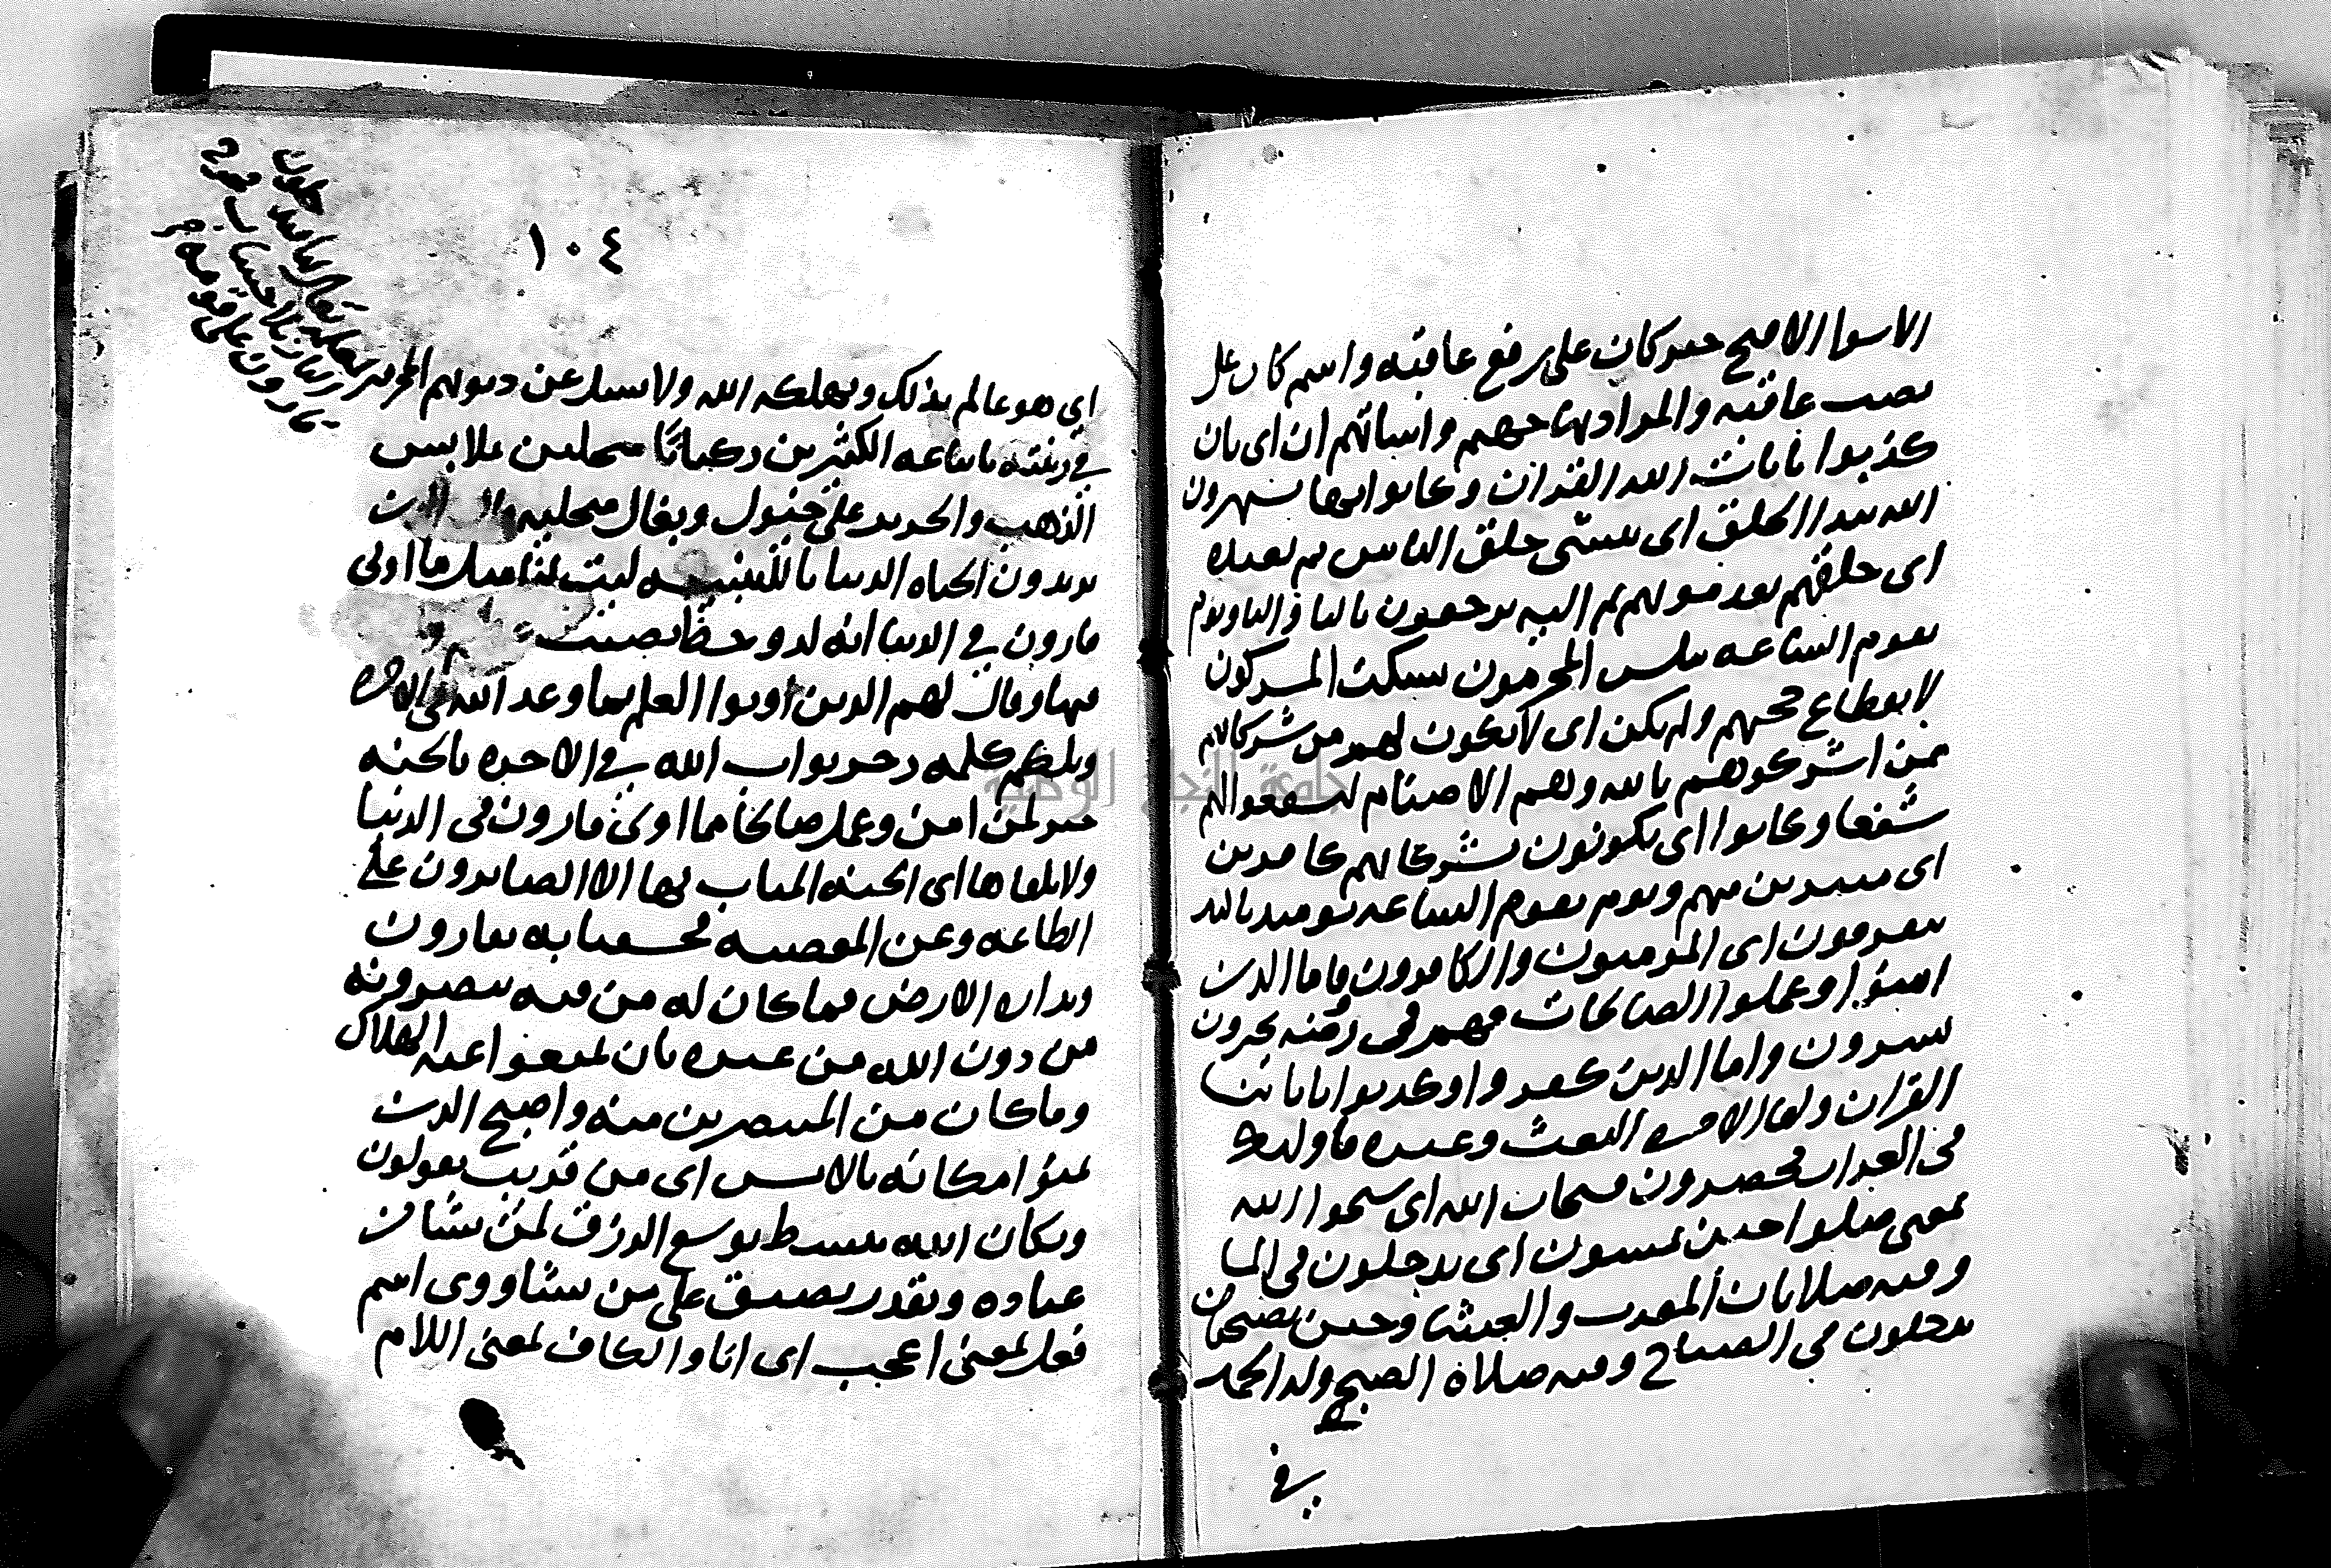 الاسوا الاقبح خبر كان على رفع عاقبه واسم كان على
نصب عاقبه والمراد بها جهنم واساتهم ان اى بان
كذبوا بايات الله القران وكانوا بها يستهزون
الله يبدا الخلق اى ينشى خلق الناس ثم يعيده
اى خلقهم بعد موتهم ثم اليه يرجعون باليا والتا ويوم
تقوم الساعه يبلس المجرمون يسكت المشركون
لانقطاع حجتهم ولم يكن اى لا يكون لهم من شركائهم
ممن اشركوهم بالله وهم الاصنام ليشفعوا لهم
شفعا وكانوا اى يكونون بشركائهم كافرين
اى متبرين منهم ويوم تقوم الساعه يوميد تاكيد
يتفرقون اى المومنون والكافرون فاما الدين
امنوا وعملوا الصالحات فهم فى روضه يحبرون
يسرون واما الدين كفروا وكدبوا باياتنا
القران ولقا الاخره البعث وغيره فاوليك
فى العداب محضرون فسبحان الله اى سبحوا الله
بمعنى صلوا حين تمسون اى تدخلون فى المسا
وفيه صلاتان المغرب والعشا وحين تصبحون
تدخلون فى الصباح وفيه صلاة الصبح وله الحمد
في
١٠٤
اي هو عالم بذلك ويهلكه الله ولا يسال عن دنوبهم المجرمون
لعلمه تعالى بها فيدخلون
النار بلا حساب فخرج
قارون على قومه
في زينته باتباعه الكثيرين ركبانًا متحلين بملابس
الذهب والحرير على خيول وبغال متحليه قال الدين
يريدون الحياه الدنيا يا للتنبيه ليت لنا مثل ما اوتي
قارون في الدنيا انه لدو حظ نصيب عظيم واف
فيها وقال لهم الدين اوتوا العلم بما وعد الله فى الاخره
ويلكم كلمه زجر ثواب الله في الاخره بالجنه
خير لمن امن وعمل صالحا مما اوتى قارون فى الدنيا
ولا يلقاها اى الجنه المثاب بها الا الصابرون على
الطاعه وعن المعصيه فخسفنا به بقارون
وبداره الارض فما كان له من فيه ينصرونه
من دون الله من غيره بان يمنعوا عنه الهلاك
وما كان من المنتصرين منه واصبح الدين
تمنوا مكانه بالامس اى من قريب يقولون
ويكان الله يبسط يوسع الرزق لمن يشا من
عباده ويقدر يضيق على من يشا ووى اسم
فعل بمعنى اعجب اى انا والكاف بمعنى اللام